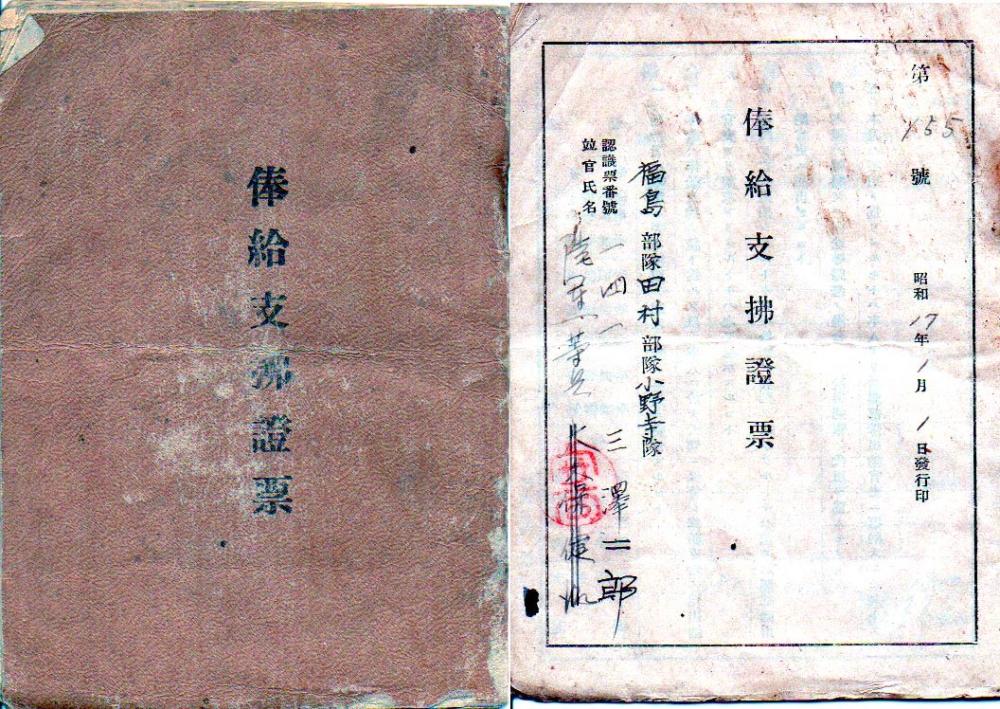 俸給支拂證票
第155號
昭和17年1月1日發行印
俸給支拂證票
福島部隊田村部隊小野寺隊
認識票番號
一四一
三澤二郎
竝官氏名
陸軍